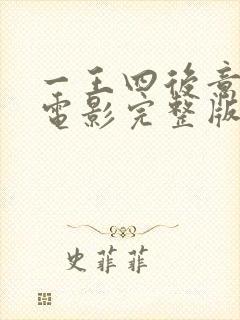 一王四後章
電影完整版
史菲菲